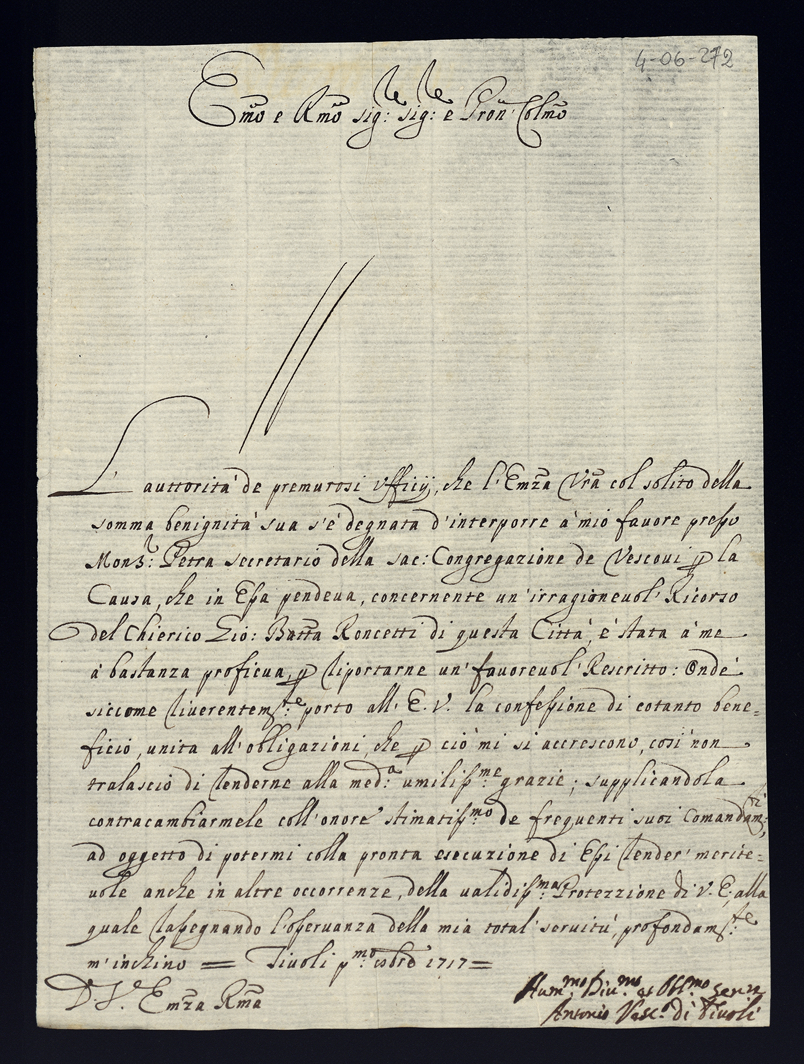 4-06-272
Em̃o e Rm̃o sig:re sig:re e Pron' Colm̃o
L'auttorità de premurosi Ufficij, che l'Em̃za Vrã col solito della
somma benignità sua s'è degnata d'interporre à mio favore presso
Mons:r Petra secretario della sac: Congregazione de Vescovi p la
Causa, che in Essa pendeva, concernente un'irragionevol' Ricorso
del Chierico Gio: Batt̃a Roncetti di questa Città, è stata à me
à bastanza proficua, p riportarne un' favorevol' Rescritto: Onde
siccome riverentem:te porto all' E. V. la confessione di cotanto bene=
ficio, unita all'obligazioni, che p ciò mi si accrescono, così non
tralascio di renderne alla med:a umiliss:me grazie; supplicandola
contracambiarmele coll'onore stimatiss:mo de frequenti suoi Comandam:ti,
ad oggetto di potermi colla pronta esecuzione di Essi render' merite=
vole anche in altre occorrenze, della validiss:ma Protezzione di V. E. alla
quale rassegnando l'osservanza della mia total' servitù, profondam:te
m'inchino = Tivoli p:mo 1717 =
D. V. Em̃za Rm̃a
Hum:mo Div:mo et Obl:mo
Antonio Vesc:o di Tivoli